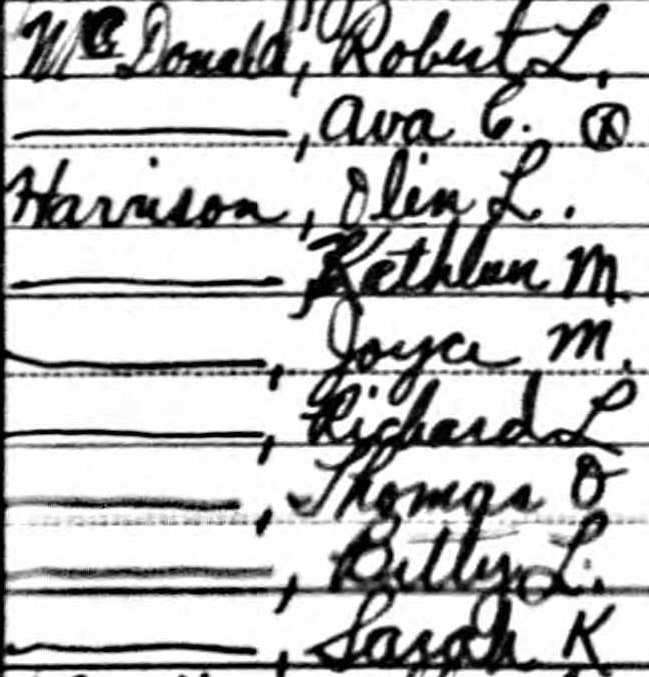 McDonald, Robert L.
———, Ava C. Ⓧ
Harrison, Olin L.
———, Kathleen M.
———, Joyce M.
———, Richard L
———, Thomas O
———, Billy L.
———, Sarah K